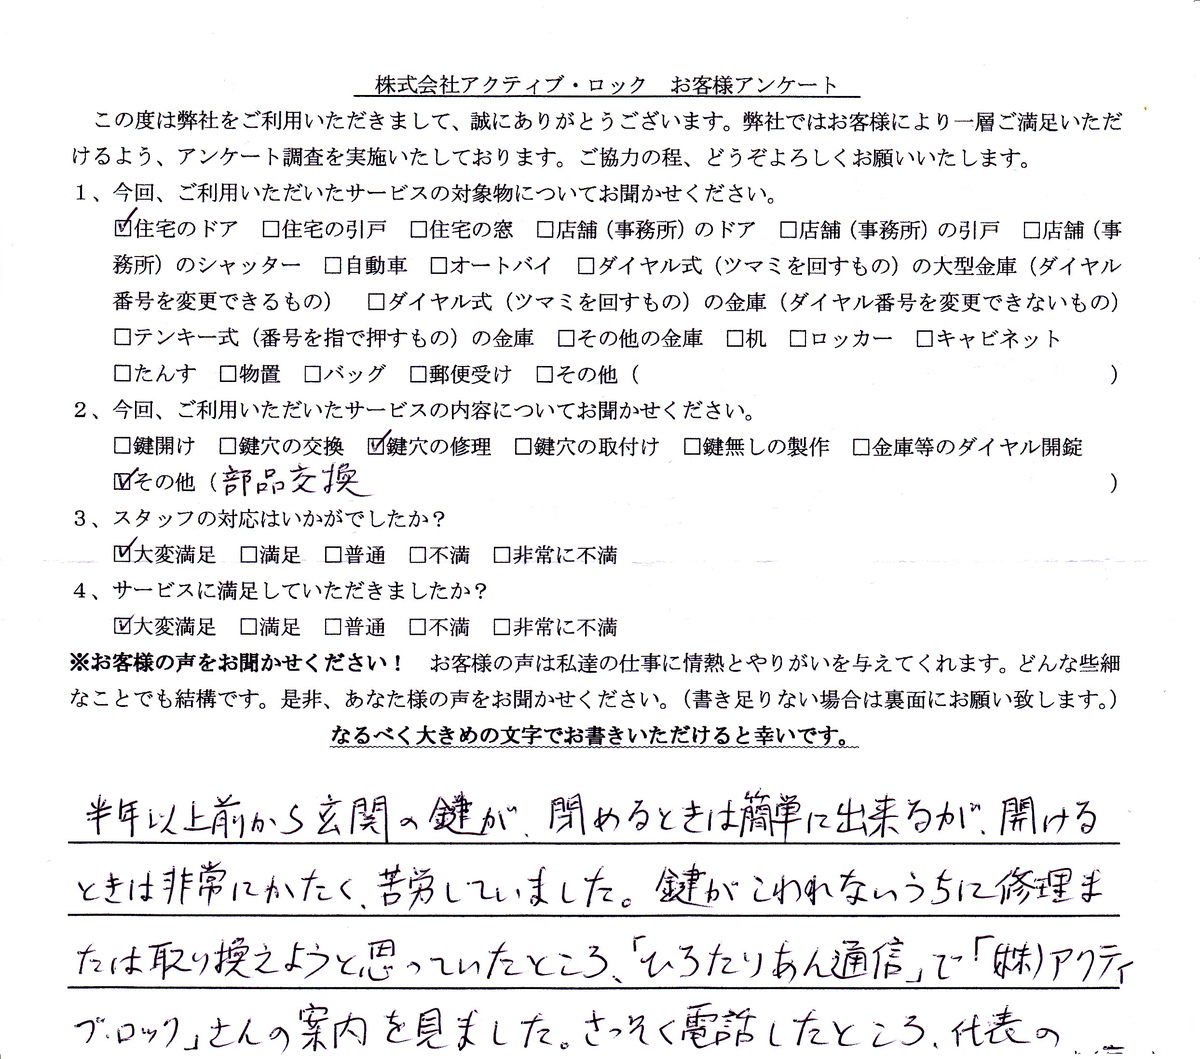 株式会社アクティブ・ロック　お客様アンケート
この度は弊社をご利用いただきまして、誠にありがとうございます。弊社ではお客様により一層ご満足いただ
けるよう、アンケート調査を実施いたしております。ご協力の程、どうぞよろしくお願いいたします。
１、今回、ご利用いただいたサービスの対象物についてお聞かせください。
☑住宅のドア　□住宅の引戸　□住宅の窓　□店舗（事務所）のドア　□店舗（事務所）の引戸　□店舗（事
務所）のシャッター　□自動車　□オートバイ　□ダイヤル式（ツマミを回すもの）の大型金庫（ダイヤル
番号を変更できるもの）　□ダイヤル式（ツマミを回すもの）の金庫（ダイヤル番号を変更できないもの）
□テンキー式（番号を指で押すもの）の金庫　□その他の金庫　□机　□ロッカー　□キャビネット
□たんす　□物置　□バッグ　□郵便受け　□その他（　　　　　　　　　　）
２、今回、ご利用いただいたサービスの内容についてお聞かせください。
□鍵開け　□鍵穴の交換　☑鍵穴の修理　□鍵穴の取付け　□鍵無しの製作　□金庫等のダイヤル開錠
☑その他（部品交換　　　　　　　　　　）
３、スタッフの対応はいかがでしたか？
☑大変満足　□満足　□普通　□不満　□非常に不満
４、サービスに満足していただきましたか？
☑大変満足　□満足　□普通　□不満　□非常に不満
※お客様の声をお聞かせください！　お客様の声は私達の仕事に情熱とやりがいを与えてくれます。どんな些細
なことでも結構です。是非、あなた様の声をお聞かせください。（書き足りない場合は裏面にお願い致します。）
なるべく大きめの文字でお書きいただけると幸いです。
半年以上前から玄関の鍵が、閉めるときは簡単に出来るが、開ける
ときは非常にかたく、苦労していました。鍵がこわれないうちに修理ま
たは取り換えようと思っていたところ、「ひろたりあん通信」で「(株)アクティ
ブ・ロック」さんの案内を見ました。さっそく電話したところ、代表の